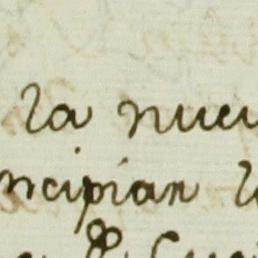 la nue
ncipian l